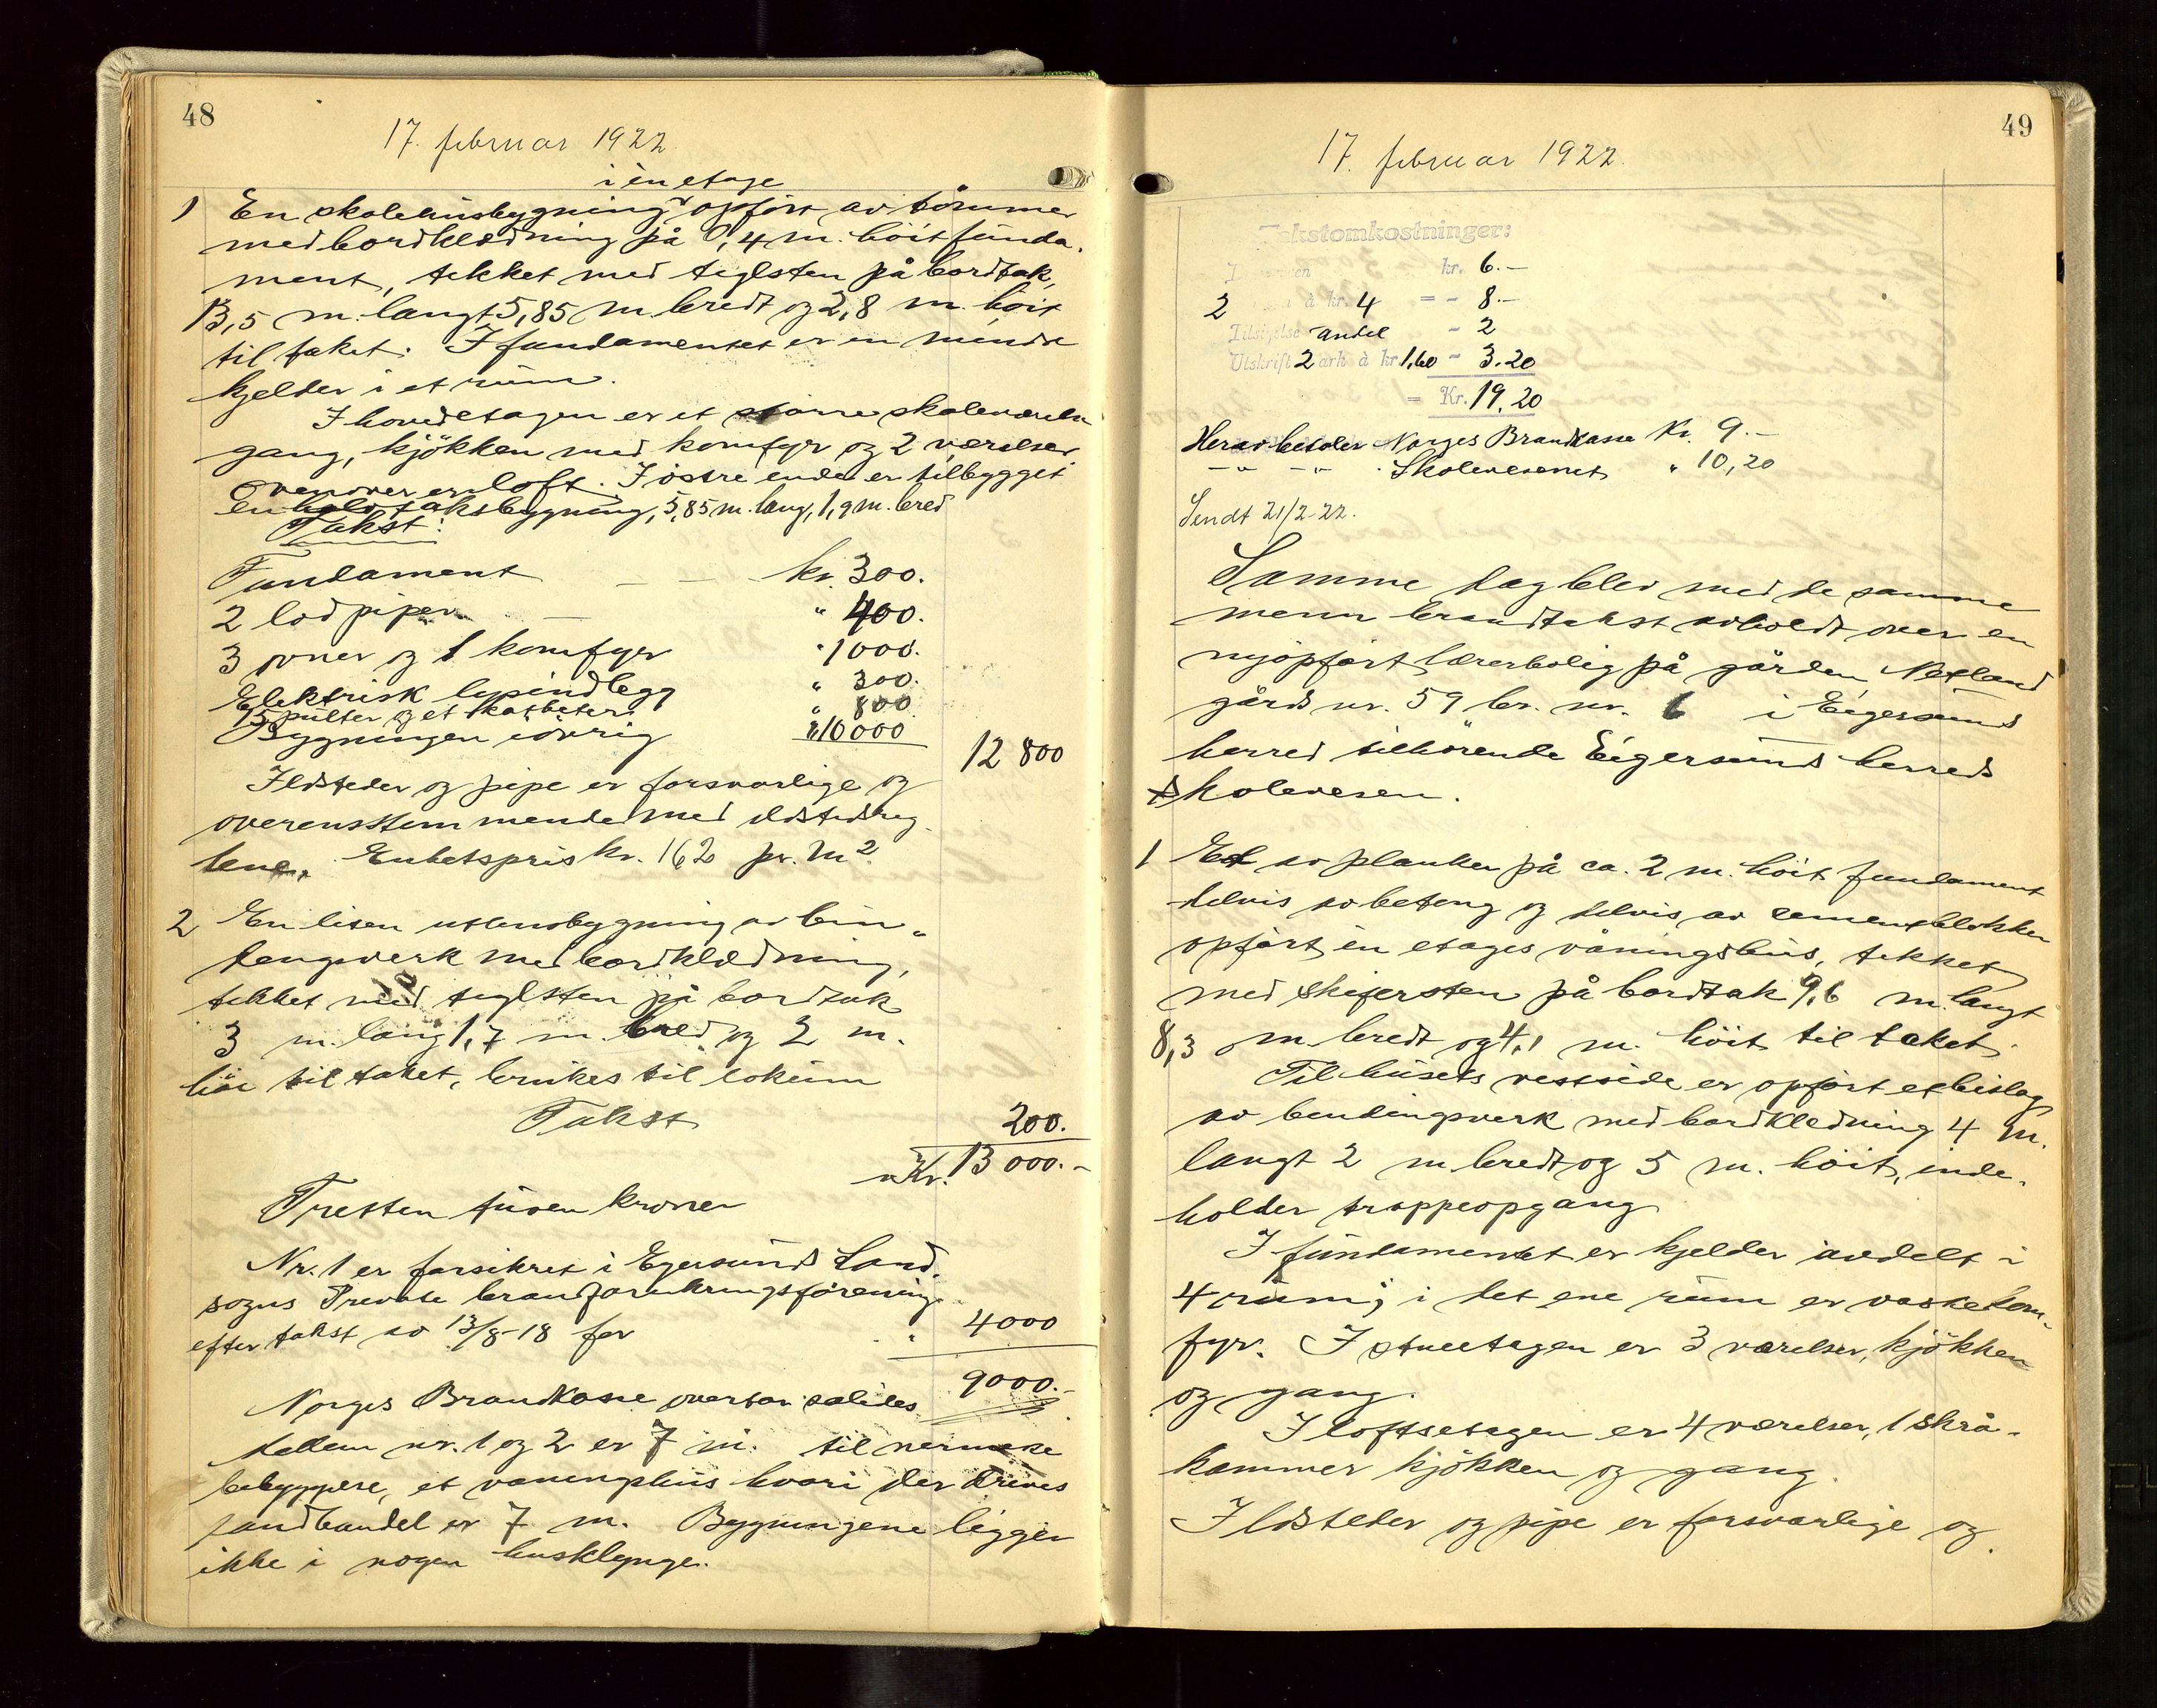 48
17. februar 1922
i én etage
1 En skolehusbygning opført av tømmer
med bordklædning på 0,4 m. höit funda-
ment, tekket med teglsten på bordtak,
13,5 m. langt 5,85 m bredt og 2,8 m. höit
til taket. I fundamentet er en mindre
kjelder i et rüm.
I hovedetagen er et større skoleværelse
gang, kjökken med komfyr og 2 værelser
Ovenover er loft. I östre ende er tilbygget
en halvtaksbygning, 5,85 m. lang, 1,9 m. bred
Takst:
Fundament kr. 300.
2 lod piper " 400.
3 ovner og 1 komfyr " 1000.
Elektrisk lysindlegg " 300.
15 pulter og et kateter " 800
Bygningen iövrig " 10000
12 800
Ildsteder og pipe er forsvarlige og
overensstemmende med ildstedsreg-
lene. Enhetspris kr. 162 pr. m²
2 En liten uthusbygning av bin-
dingsverk med bordklædning,
tekket med teglsten på bordtak
3 m. lang 1,7 m bred og 2 m.
höi til taket, brukes til lokum
Takst 200.
Kr. 13 000.-
Tretten tusen kroner
Nr. 1 er forsikret i Egersunds Land-
sogns Private brandforsikringsförening
efter takst av 13/8-18 for " 4000
9000.-
Norges Brandkasse overtar således
Mellem nr. 1 og 2 er 7 m. til nermeste
bebyggelse, et vaningshus hvori der drives
landhandel er 7 m. Bygningene ligger
ikke i nogen husklynge.
49
17. februar 1922.
Takstomkostninger:
kr. 6.-
2 à kr. 4 = - 8.-
Tilsigelse andel - 2
Utskrift 2 ark à kr 1,60 - 3.20
= Kr. 19,20
Herav betaler Norges Brandkasse Kr. 9.-
-"- -"- Skolevesenet " 10,20
Sendt 21/2-22.
Samme dag blev med de samme
menn brandtakst avholdt over en
nyopført lærerbolig på gården Netland
gårds nr. 59 br. nr. 6 i Eigersunds
herred tilhörende Eigersunds herreds
skolevesen.
1 Et av planker på ca. 2 m. höit fundament
delvis av betong og delvis av cementblokker
opført én etages våningshus, tekket
med skifersten på bordtak 9,6 m. langt
8,3 m. bredt og 4,1 m. höit til taket.
Til husets vestside er opført et bislag
av bendingsverk med bordkledning 4 m.
langt 2 m bredt og 5 m. höit, inde-
holder trappeopgang
I fundamentet er kjelder avdelt i
4 rum; i det ene rum er vaskekom-
fyr. I stueetagen er 3 værelser, kjökken
og gang.
I loftsetagen er 4 værelser, 1 skrå-
kammer kjökken og gang.
Ildsteder og pipe er forsvarlige og